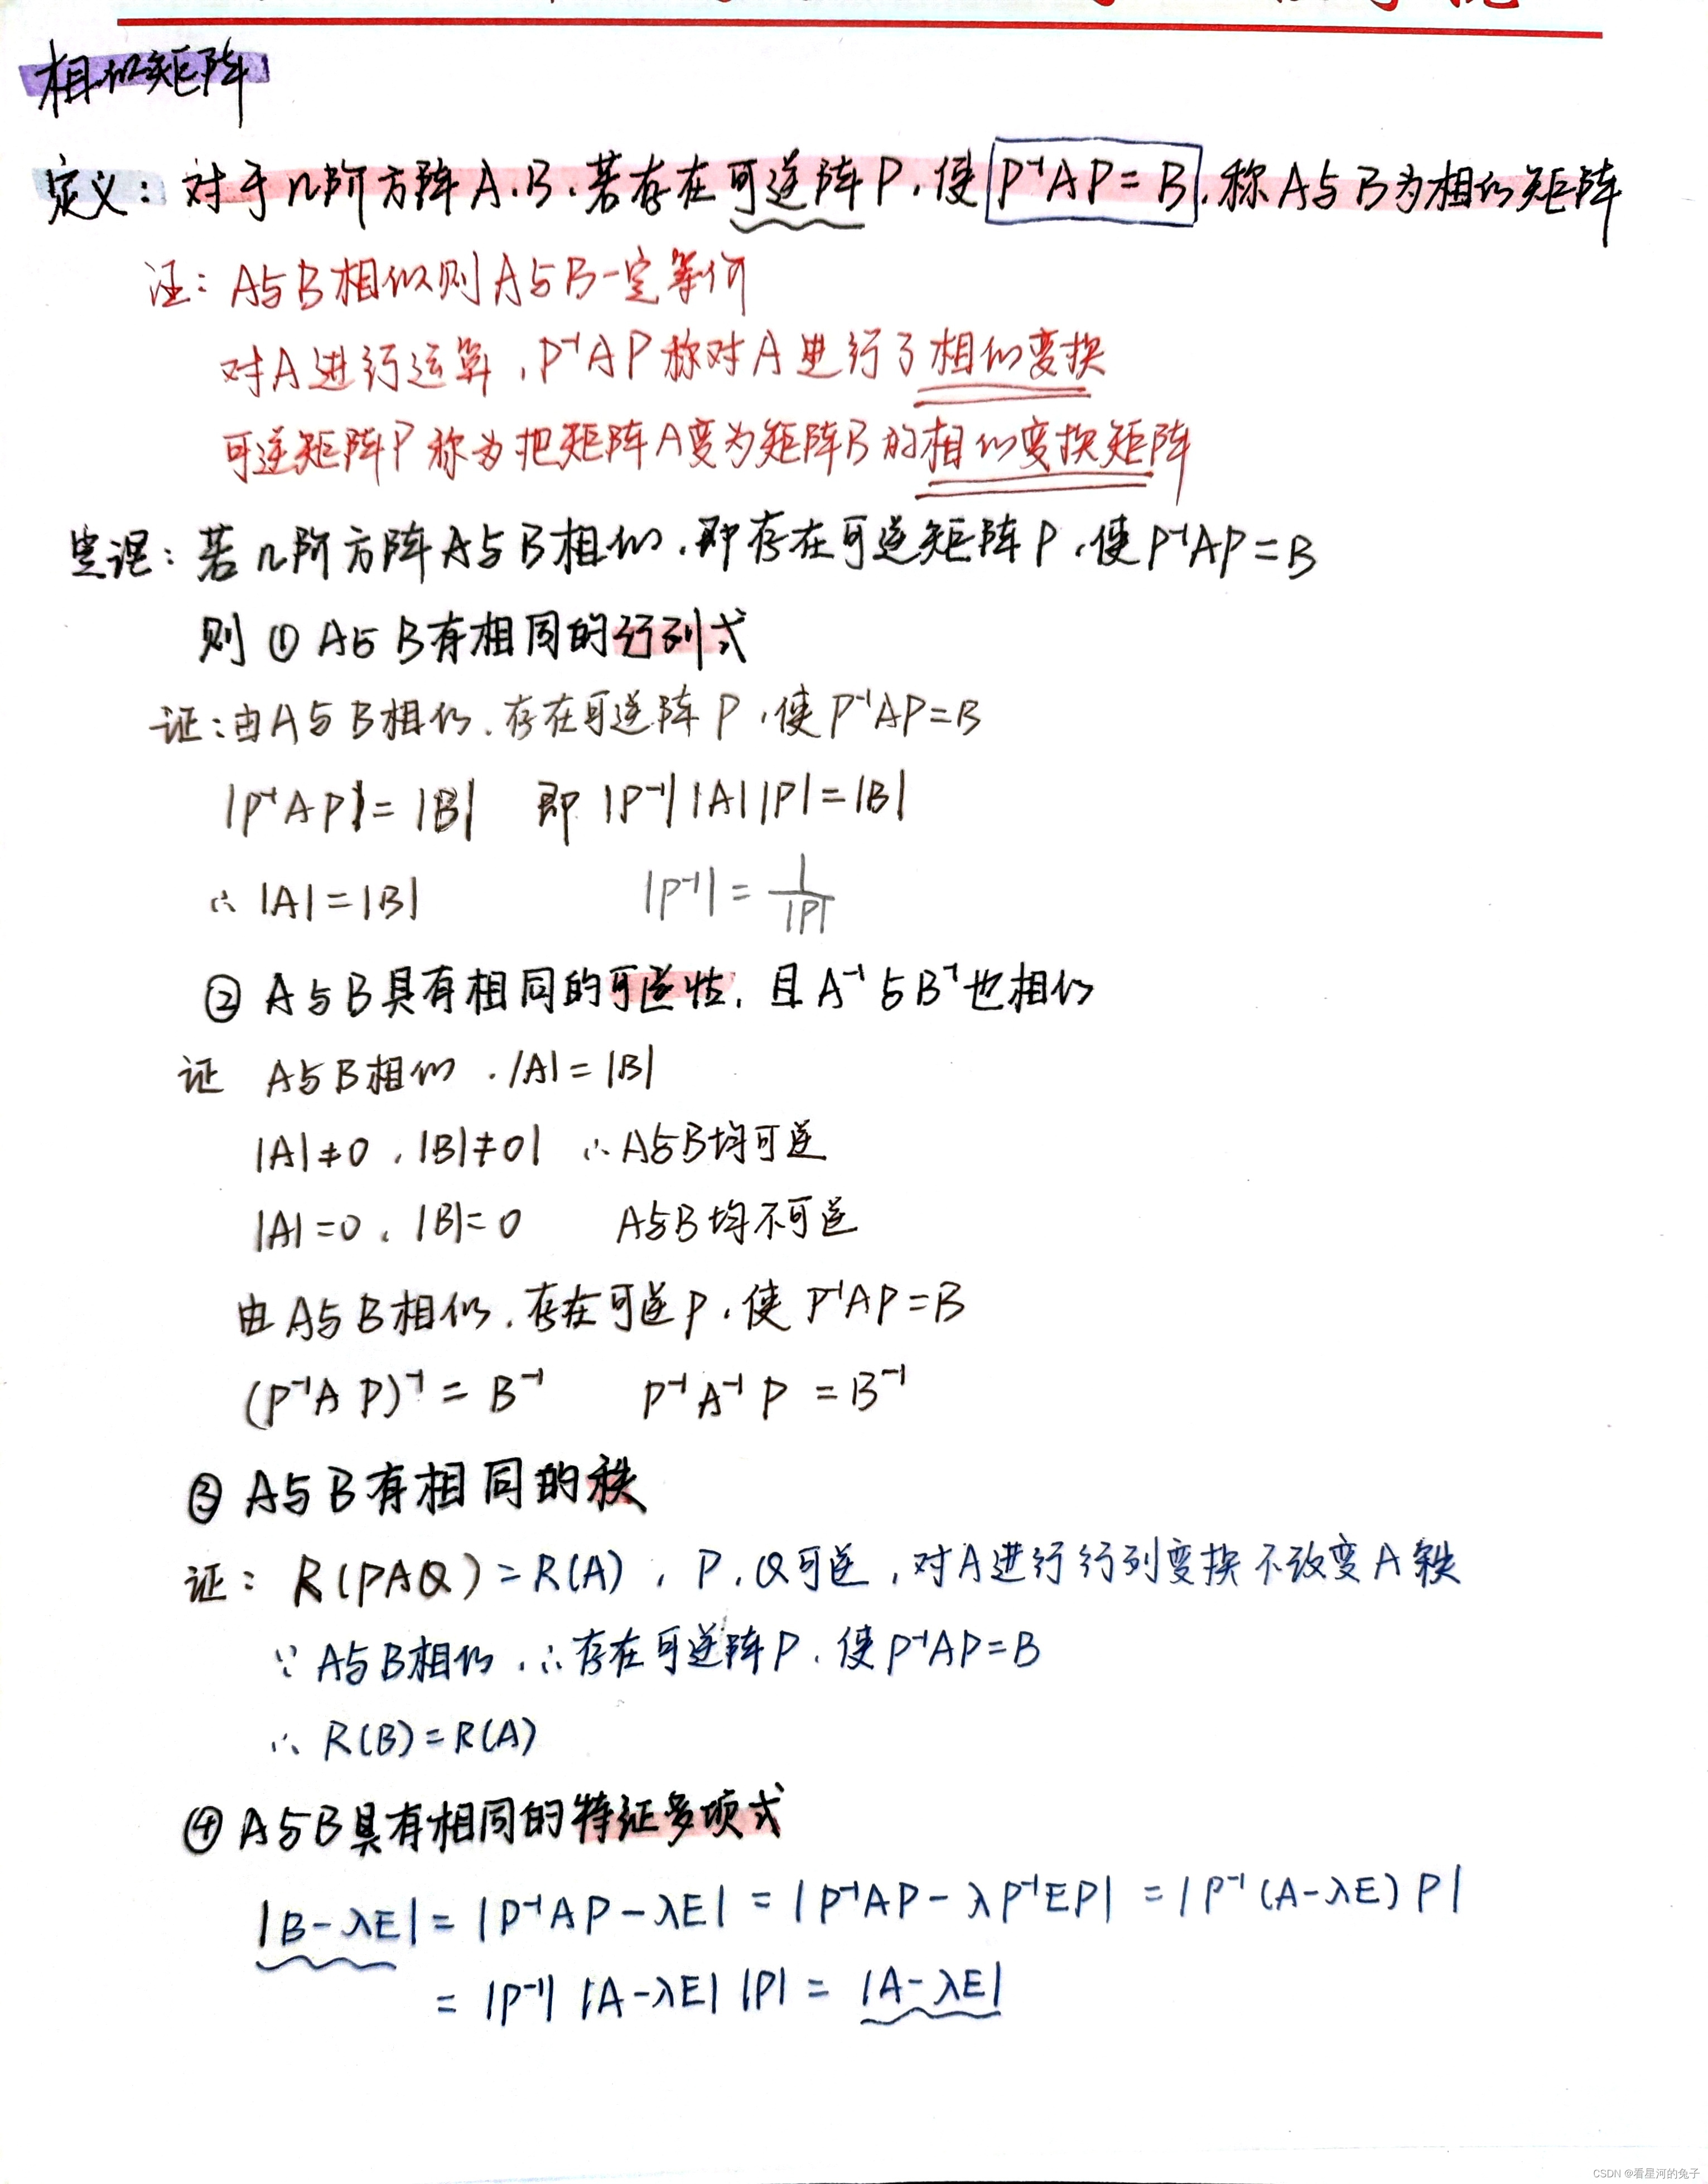 相似矩阵
定义：对于n阶方阵A.B.若存在可逆阵P.使P⁻¹AP=B.称A与B为相似矩阵
注：A与B相似则A与B一定等价
对A进行运算，P⁻¹AP称对A进行了相似变换
可逆矩阵P称为把矩阵A变为矩阵B的相似变换矩阵
定理：若n阶方阵A与B相似.即存在可逆矩阵P.使P⁻¹AP=B
则①A与B有相同的行列式
证:由A与B相似.存在可逆阵P，使P⁻¹AP=B
|P⁻¹AP|=|B| 即|P⁻¹||A||P|=|B|
∴|A|=|B| |P⁻¹|=1/|P|
②A与B具有相同的可逆性.且A⁻¹与B⁻¹也相似
证 A与B相似.|A|=|B|
|A|≠0，|B|≠0| ∴A与B均可逆
|A|=0，|B|=0 A与B均不可逆
由A与B相似.存在可逆P.使P⁻¹AP=B
(P⁻¹AP)⁻¹=B⁻¹ P⁻¹A⁻¹P=B⁻¹
③A与B有相同的秩
证：R(PAQ)=R(A)，P.Q可逆，对A进行行列变换不改变A秩
∵A与B相似.∴存在可逆阵P.使P⁻¹AP=B
∴R(B)=R(A)
④A与B具有相同的特征多项式
|B-λE|=|P⁻¹AP-λE|=|P⁻¹AP-λP⁻¹EP|=|P⁻¹(A-λE)P|
=|P⁻¹||A-λE||P|=|A-λE|
CSDN @看星河的兔子